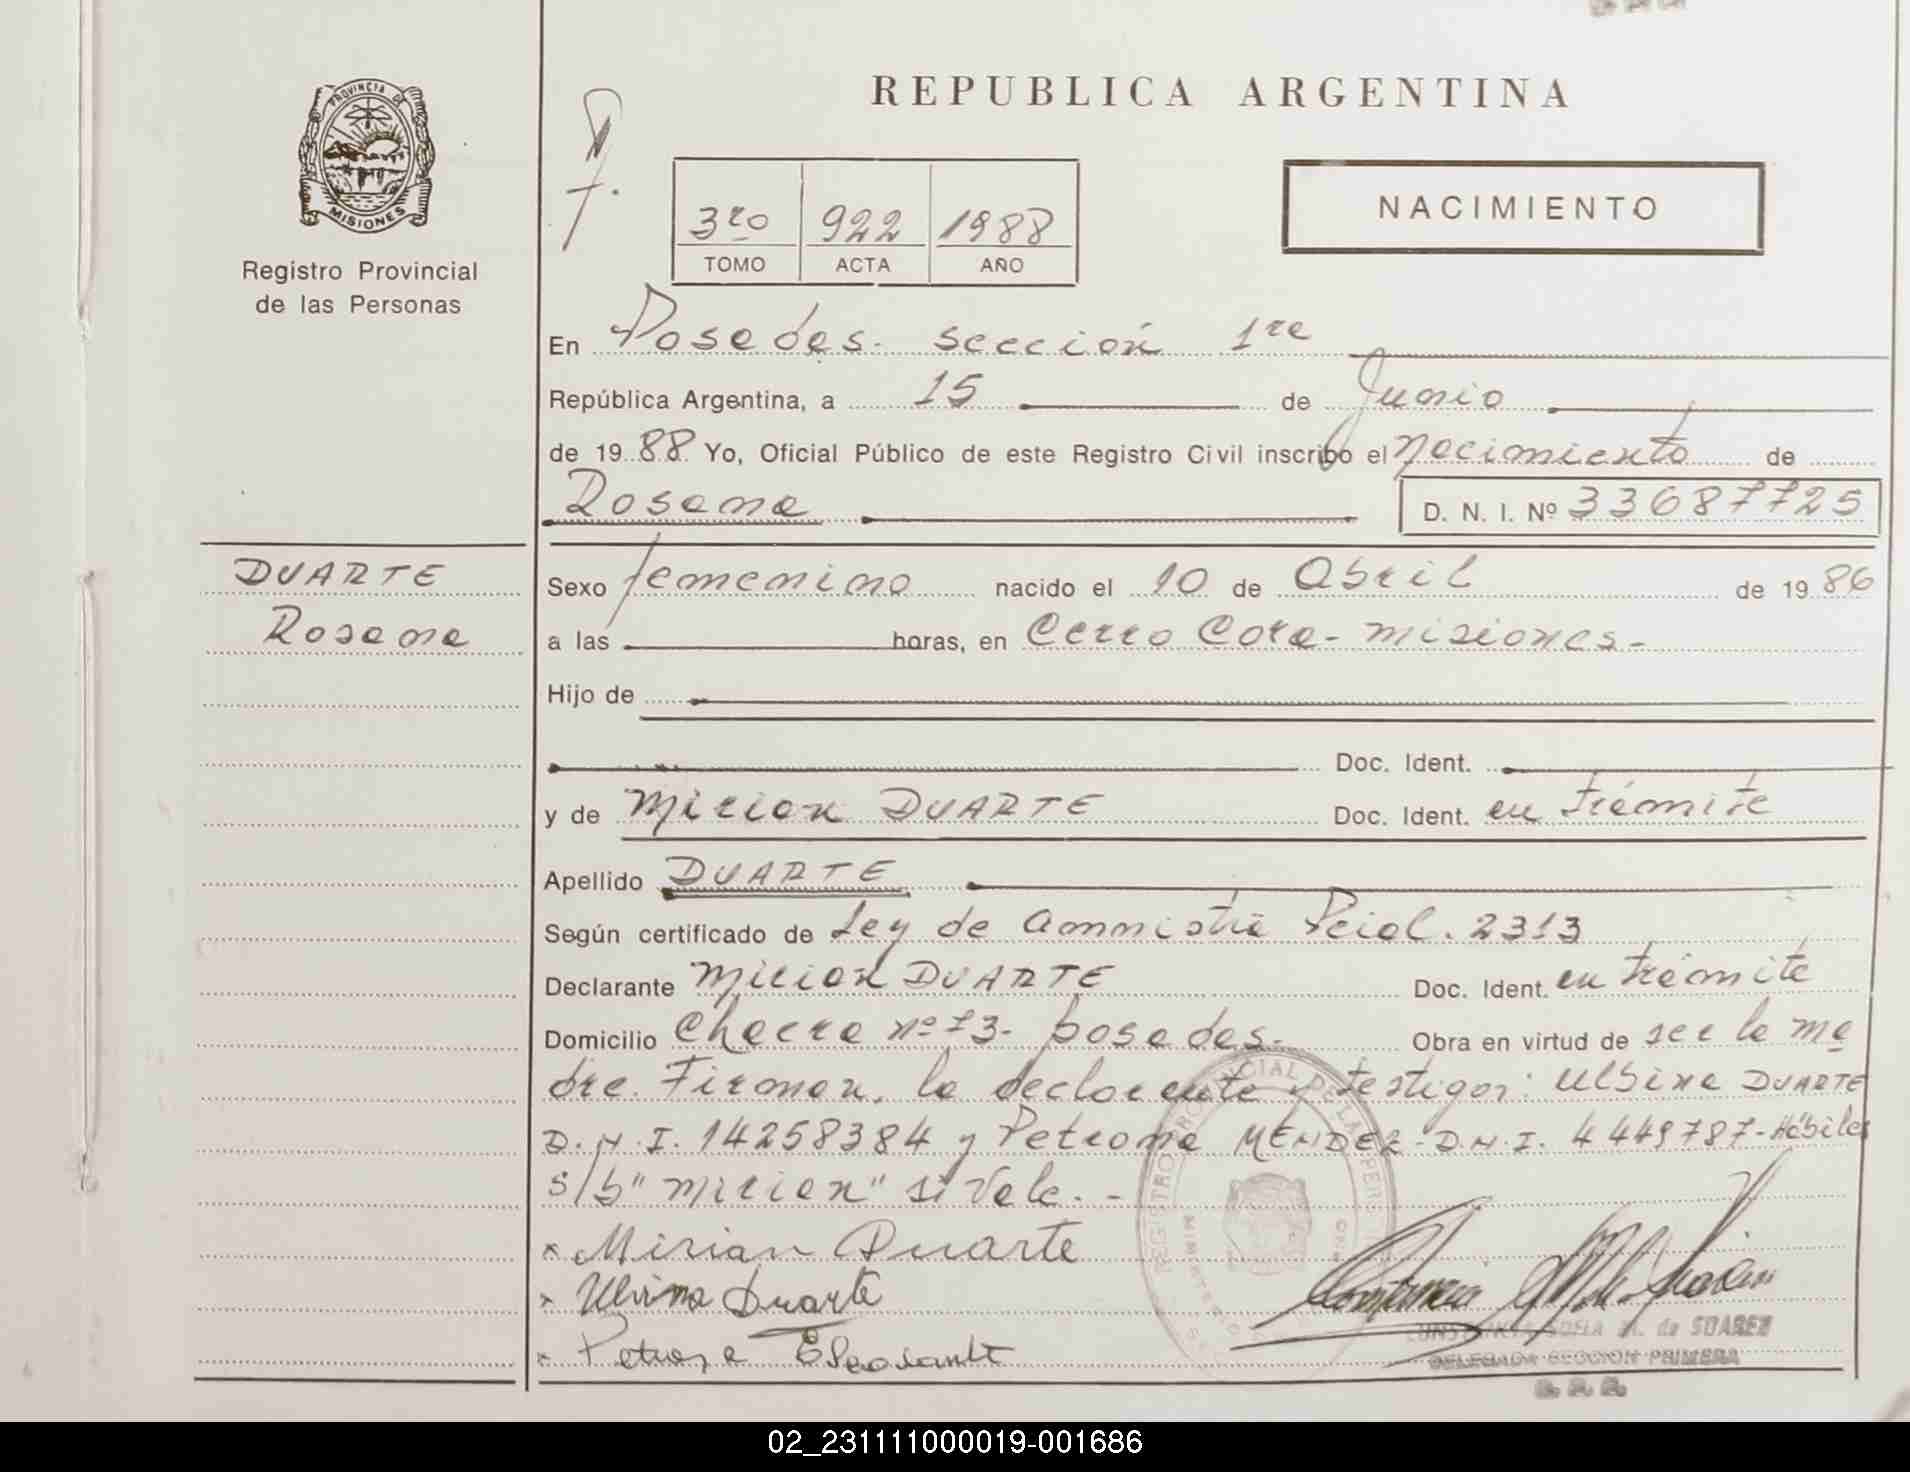 PROVINCIA DE
MISIONES
Registro Provincial
de las Personas
REPUBLICA ARGENTINA
NACIMIENTO
3ro 922 1988
TOMO ACTA AÑO
En Posadas. sección 1ra
República Argentina, a 15 de Junio
de 1988 Yo, Oficial Público de este Registro Civil inscribo el nacimiento de
Rosana D. N. I. Nº 33687725
DUARTE
Rosana
Sexo femenino nacido el 10 de Abril de 1986
a las horas, en Cerro Cora- misiones-
Hijo de
Doc. Ident.
y de Mirian DUARTE Doc. Ident. en trámite
Apellido DUARTE
Según certificado de Ley de Amnistia Pcial. 2313
Declarante Mirian DUARTE Doc. Ident. en trámite
Domicilio Chacra nº 73- posadas- Obra en virtud de ser la ma
dre. Firman, la declarante y testigos: Ulbina DUARTE
D.N.I. 14258384 y Petrona MENDEZ- D.N.I. 4449787- Hábiles
s/b "mirian" si Vale. -
x Mirian Duarte
x Ulvina Duarte
x
REGISTRO PROVINCIAL DE LAS PERS
SOFIA M. de SUAREZ
DELEGADA SECCION PRIMERA
02_231111000019-001686